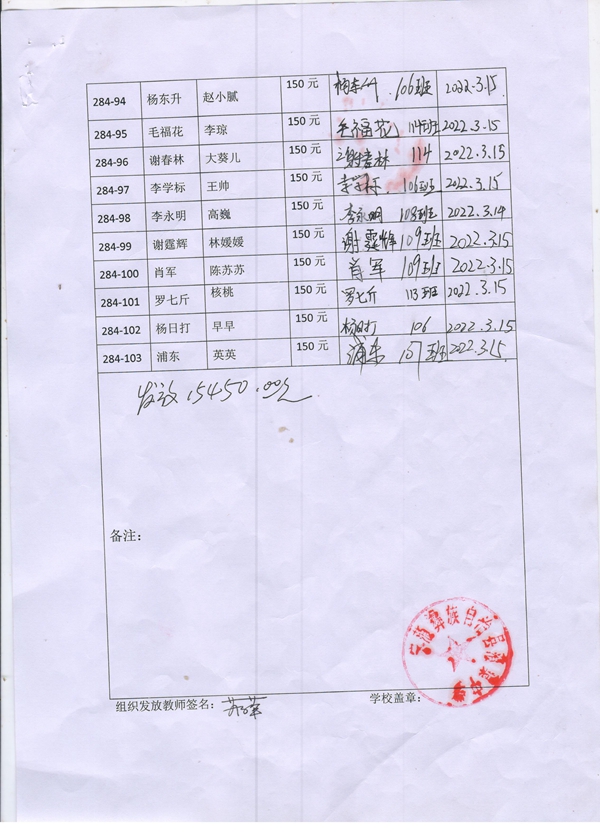 284-94 杨东升 赵小腻 150 元 106班 2022.3.15.
284-95 毛福花 李琼 150 元 毛福花 114班 2022.3.15
284-96 谢春林 大葵儿 150 元 谢春林 114 2022.3.15
284-97 李学标 王帅 150 元 李学标 106班 2022.3.15
284-98 李永明 高巍 150 元 李永明 108班 2022.3.14
284-99 谢霆辉 林媛媛 150 元 谢霆辉 109班 2022.3.15
284-100 肖军 陈苏苏 150 元 肖军 109班 2022.3.15
284-101 罗七斤 核桃 150 元 罗七斤 113班 2022.3.15
284-102 杨日打 早早 150 元 杨日打 106 2022.3.15
284-103 浦东 英英 150 元 浦东 107班 2022.3.15.
发放15450.00元
备注：
彝族自治县
组织发放教师签名：
学校盖章：